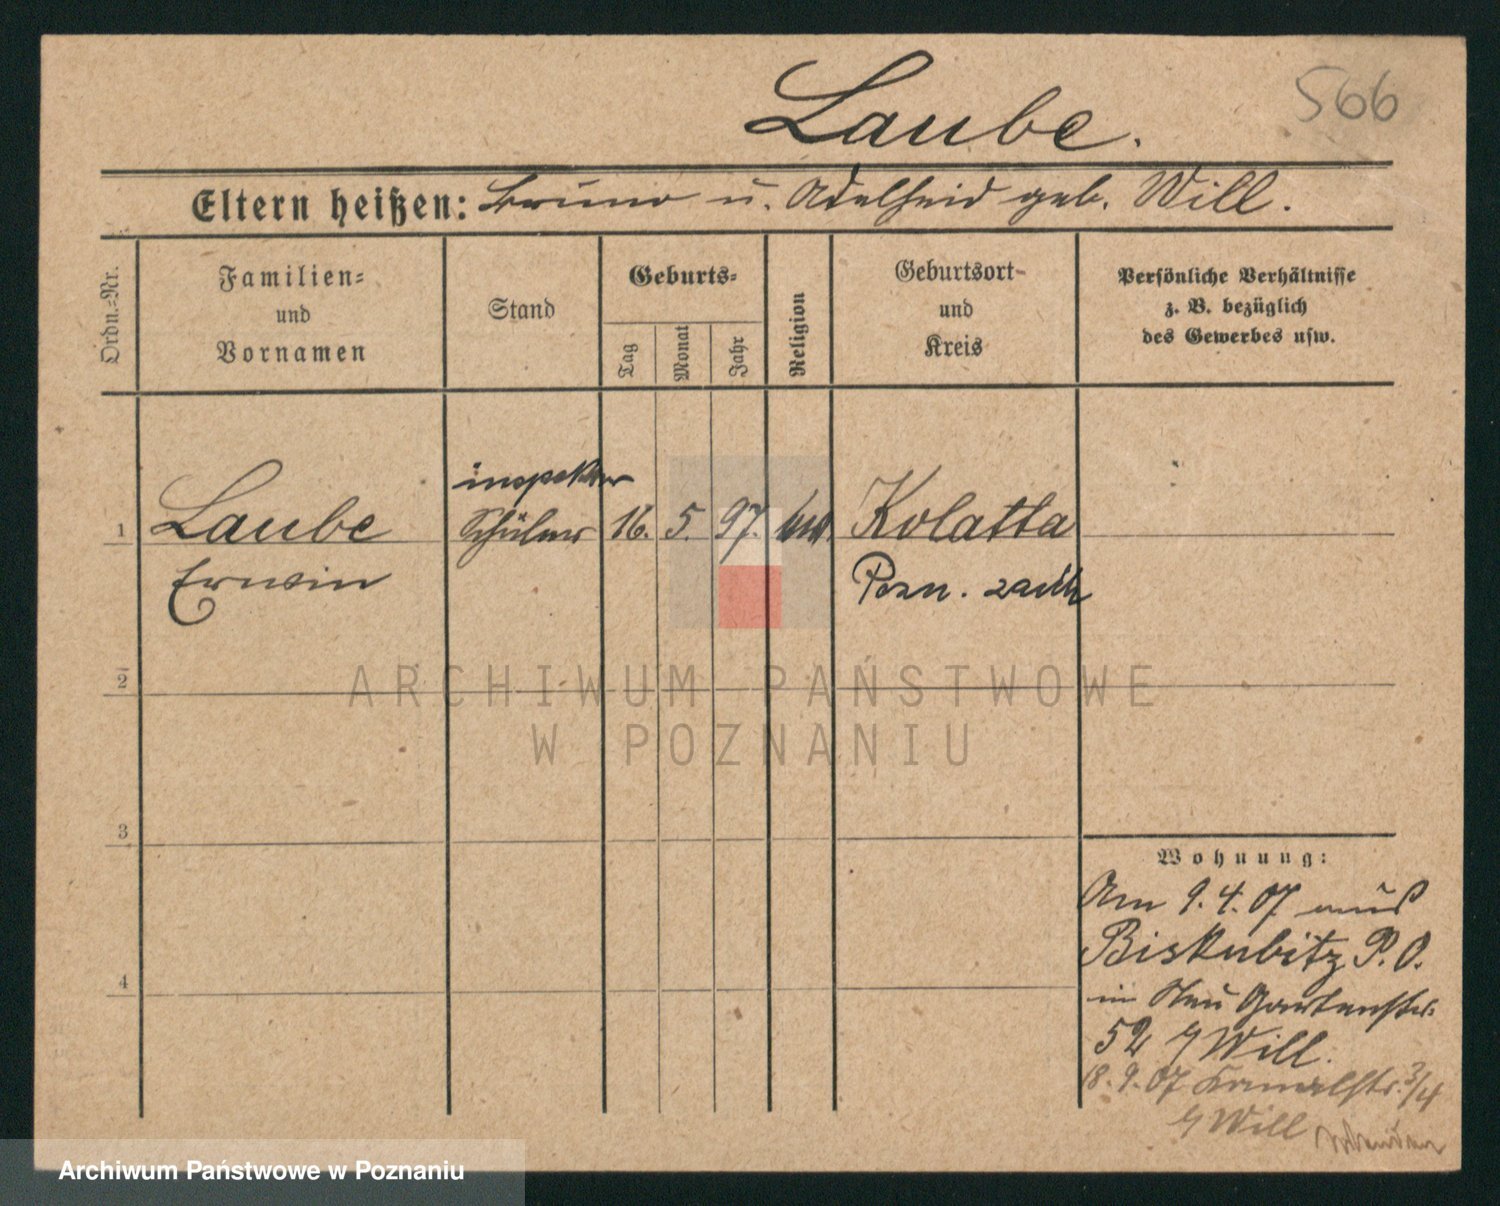 Laube.
566
Eltern heißen: Bruno u. Adelheid geb. Will.
Ordn.=Nr.
Familien=
und
Vornamen
Stand
Geburts=
Tag
Monat
Jahr
Religion
Geburtsort
und
Kreis
Persönliche Verhältnisse
z. B. bezüglich
des Gewerbes usw.
inspektor
1 Laube Schüler 16. 5. 97. Kolatta
Erwin Posn.
2
ARCHIWUM PAŃSTWOWE
W POZNANIU
3
4
Wohnung:
Am 9.4.07 aus
Biskubitz P.O.
in Neu Gartenstr.
52 b/ Will.
18.9.07 Kanalstr. 3/4
b/ Will
Archiwum Państwowe w Poznaniu